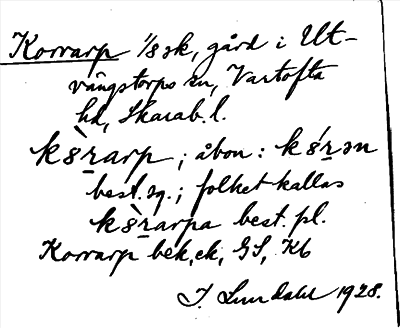 Korrarp 1/8 sk, gård i Ut-
vängstorps sn, Vartofta
hd, Skarab. l.
k8̀rarp ; åbon : k8́rən
best. sg. ; folket kallas
k8̀rarpa best. pl.
Korrarp bek, ek, GS, Kb
J. Lundahl 1928.